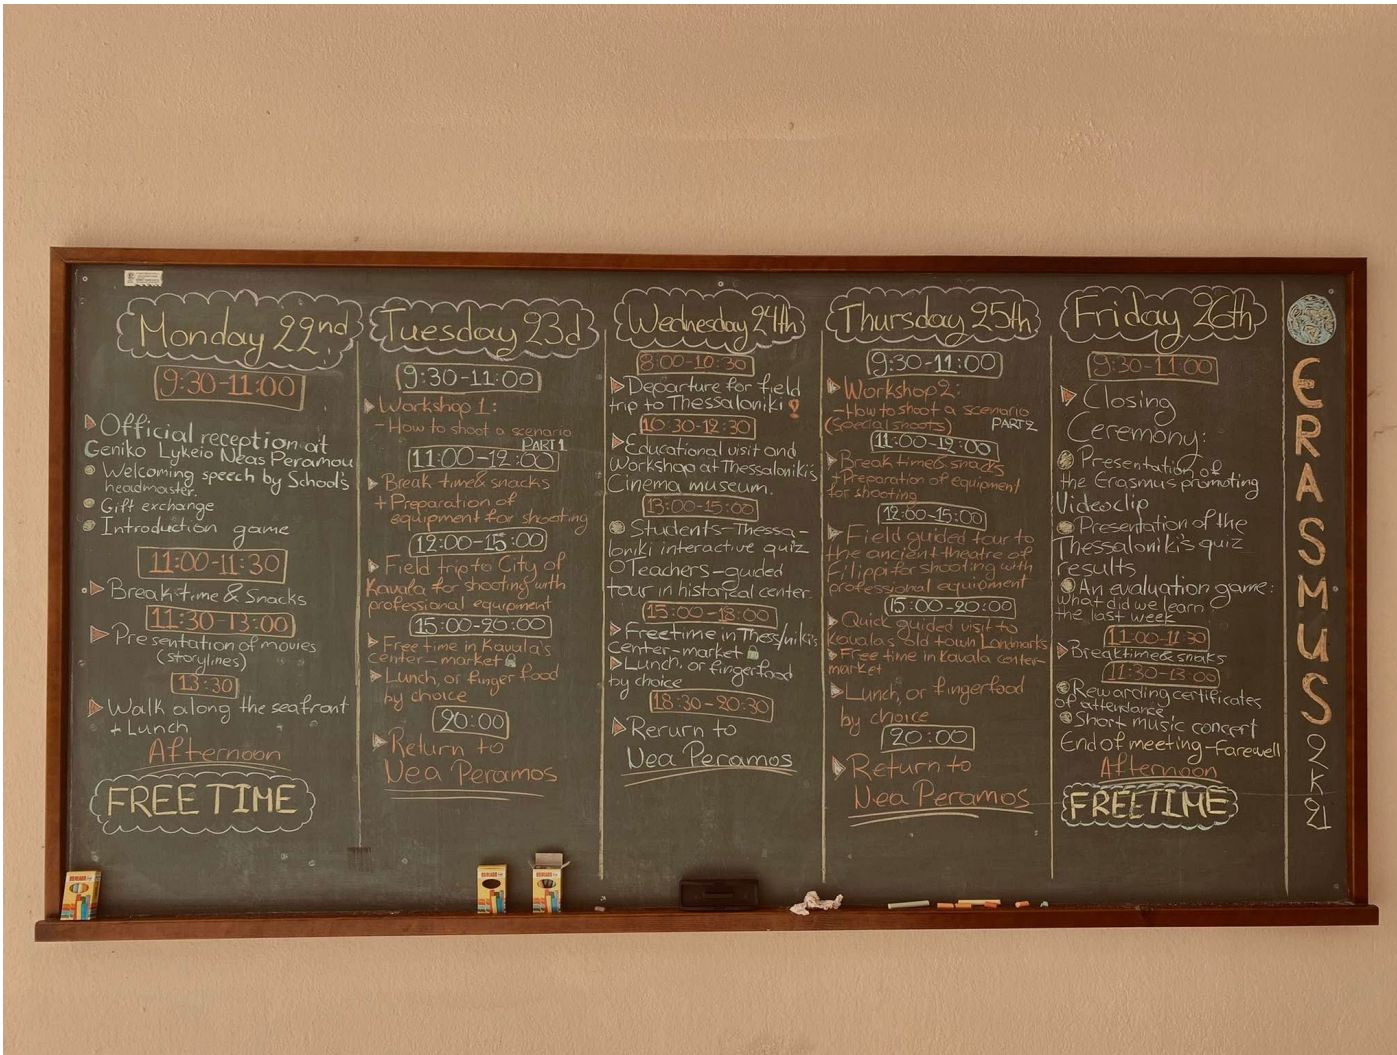 Monday 22nd
9:30-11:00
Official reception at
Geniko Lykeio Neas Peramou
Welcoming speech by School's
headmaster.
Gift exchange
Introduction game
11:00-11:30
Break time & Snacks
11:30-13:00
Presentation of movies
(storylines)
13:30
Walk along the seafront
+ Lunch
Afternoon
FREE TIME
Tuesday 23d
9:30-11:00
Workshop 1:
- How to shoot a scenario
PART 1
11:00-12:00
Break time & snacks
+ Preparation of
equipment for shooting
12:00-15:00
Field trip to City of
Kavala for shooting with
professional equipment
15:00-20:00
Free time in Kavala's
center-market
Lunch, or finger food
by choice
20:00
Return to
Nea Peramos
Wednesday 24th
8:00-10:30
Departure for field
trip to Thessaloniki !
10:30-12:30
Educational visit and
Workshop at Thessaloniki's
Cinema museum.
13:00-15:00
Students-Thessa-
loniki interactive quiz
Teachers-guided
tour in historical center.
15:00-18:00
Freetime in Thess/niki's
Center-market
Lunch, or fingerfood
by choice
18:30-20:30
Rerurn to
Nea Peramos
Thursday 25th
9:30-11:00
Workshop 2:
- How to shoot a scenario
(special shoots) PART 2
11:00-12:00
Break time & snacks
+ Preparation of equipment
for shooting
12:00-15:00
Field guided tour to
the ancient theatre of
Filippi for shooting with
professional equipment
15:00-20:00
Quick guided visit to
Kavala's old town Landmarks
Free time in Kavala center-
market
Lunch, or fingerfood
by choice
20:00
Return to
Nea Peramos
Friday 26th
9:30-11:00
Closing
Ceremony:
Presentation of
the Erasmus promoting
Videoclip
Presentation of the
Thessaloniki's quiz
results
An evaluation game:
what did we learn
the last week
11:00-11:30
Breaktime & snaks
11:30-13:00
Rewarding certificates
of attendance
Short music concert
End of meeting-farewell
Afternoon
FREETIME
ERASMUS
2K21